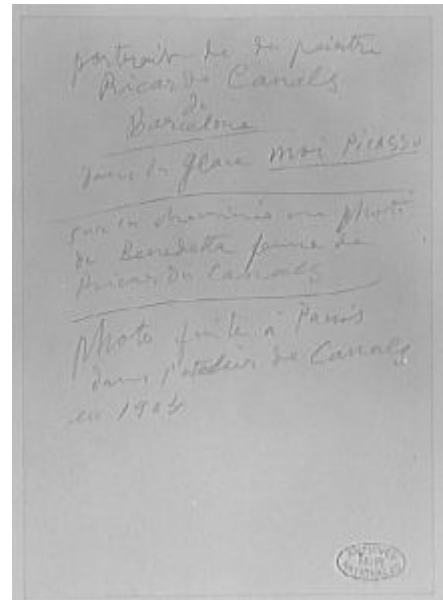 portrait de du peintre
Ricardo Canals
de
Barcelone
dans la glace moi Picasso
sur la cheminée une photo
de Benedetta femme de
Ricardo Canals
Photo faite à Paris
dans l'atelier de Canals
en 1904